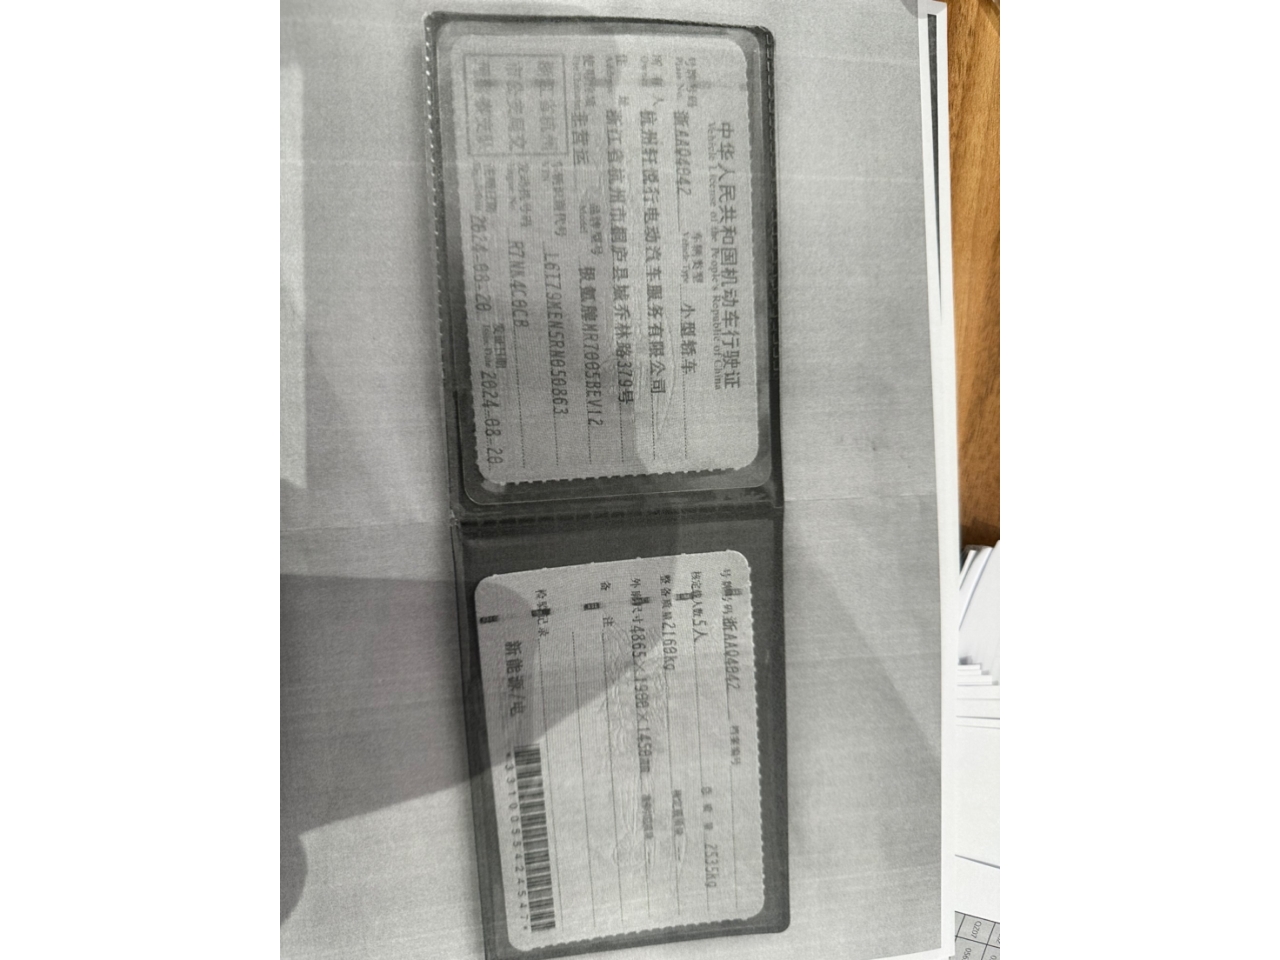 中华人民共和国机动车行驶证
Vehicle License of the People's Republic of China
号牌号码 浙AAQ4042 车辆类型 小型轿车
Plate No. Vehicle Type
所有人 杭州轩悦行电动汽车服务有限公司
Owner
住址 浙江省杭州市桐庐县城乔林路379号
Address
使用性质 非营运 品牌型号 极氪牌MR7005BEV12
Use Character Model
浙江省杭州 车辆识别代号 L6T79MEN5RN050863
VIN
市公安局交 发动机号码 R7NK4C0CB
Engine No.
注册日期 2024-08-20 发证日期 2024-08-20
Issue Date
号牌号码 浙AAQ4042 档案编号
核定载人数 5人 总质量 2535kg
整备质量 2160kg 核定载质量 --
外廓尺寸 4865×1900×1450mm 准牵引总质量 --
备注
检验记录
新能源/电
*3310055424547*